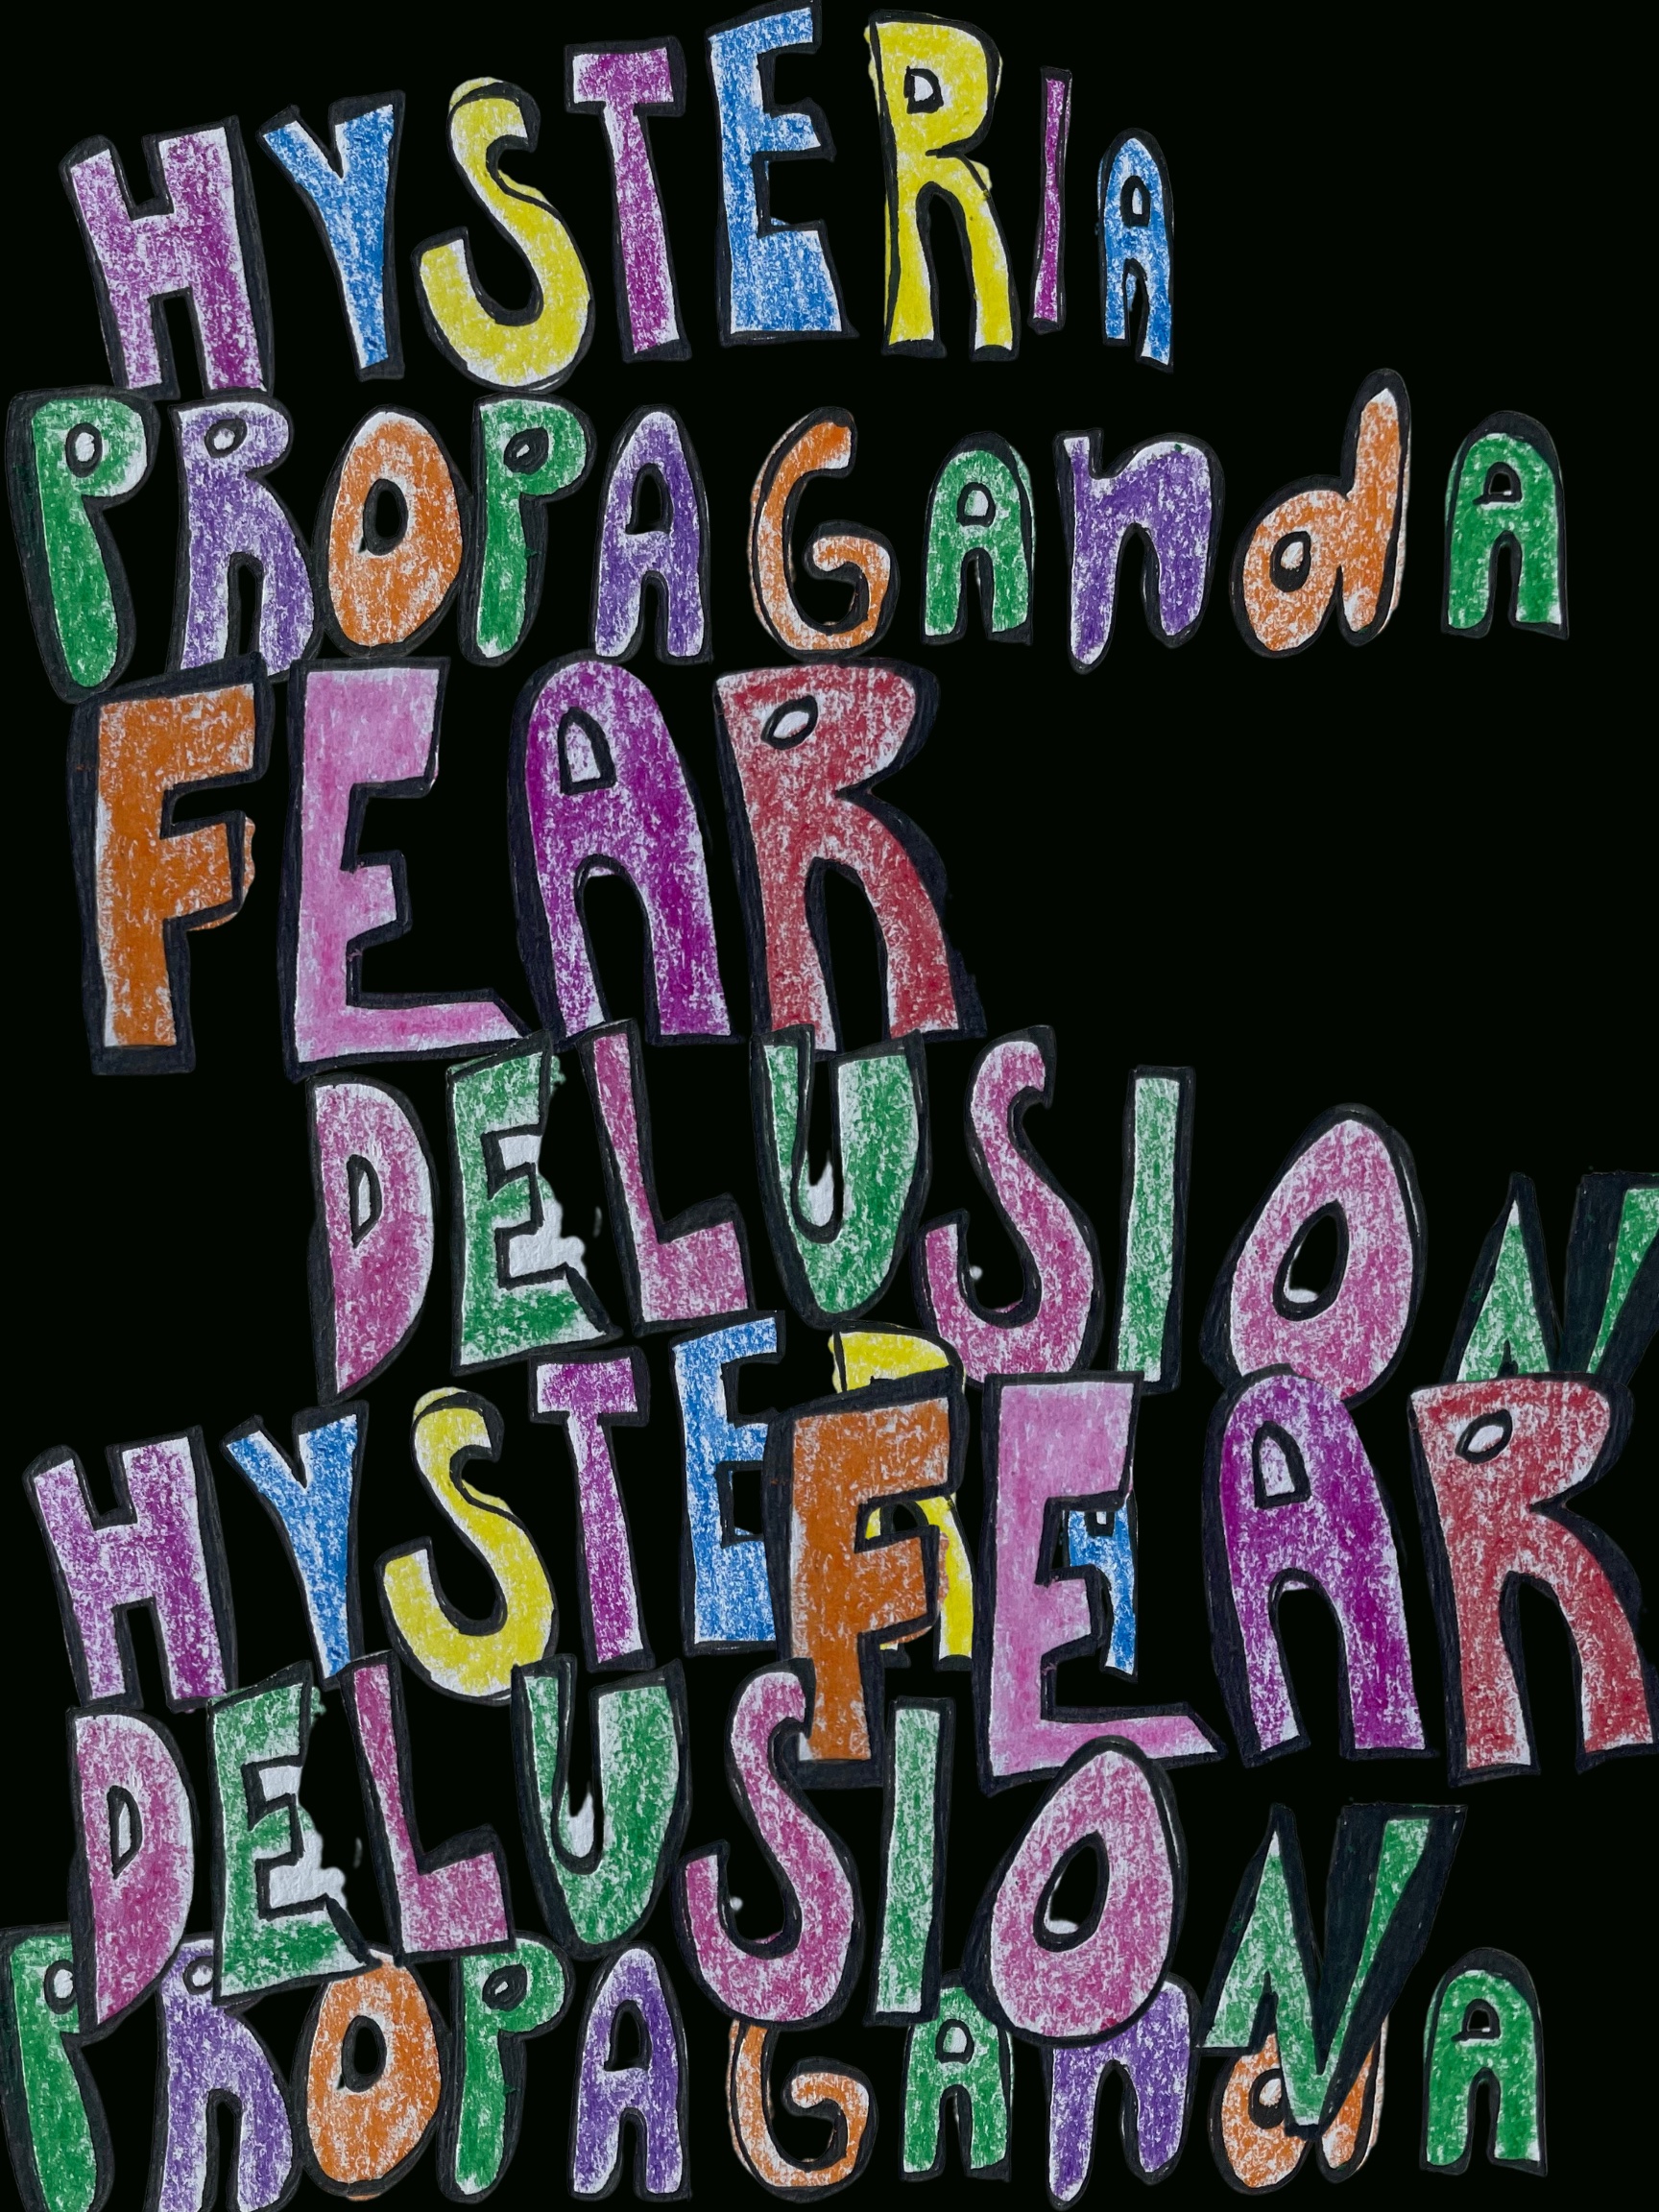 HYSTERIA
PROPAGanda
FEAR
DELUSION
HYSTERIA
FEAR
DELUSION
PROPAGanda